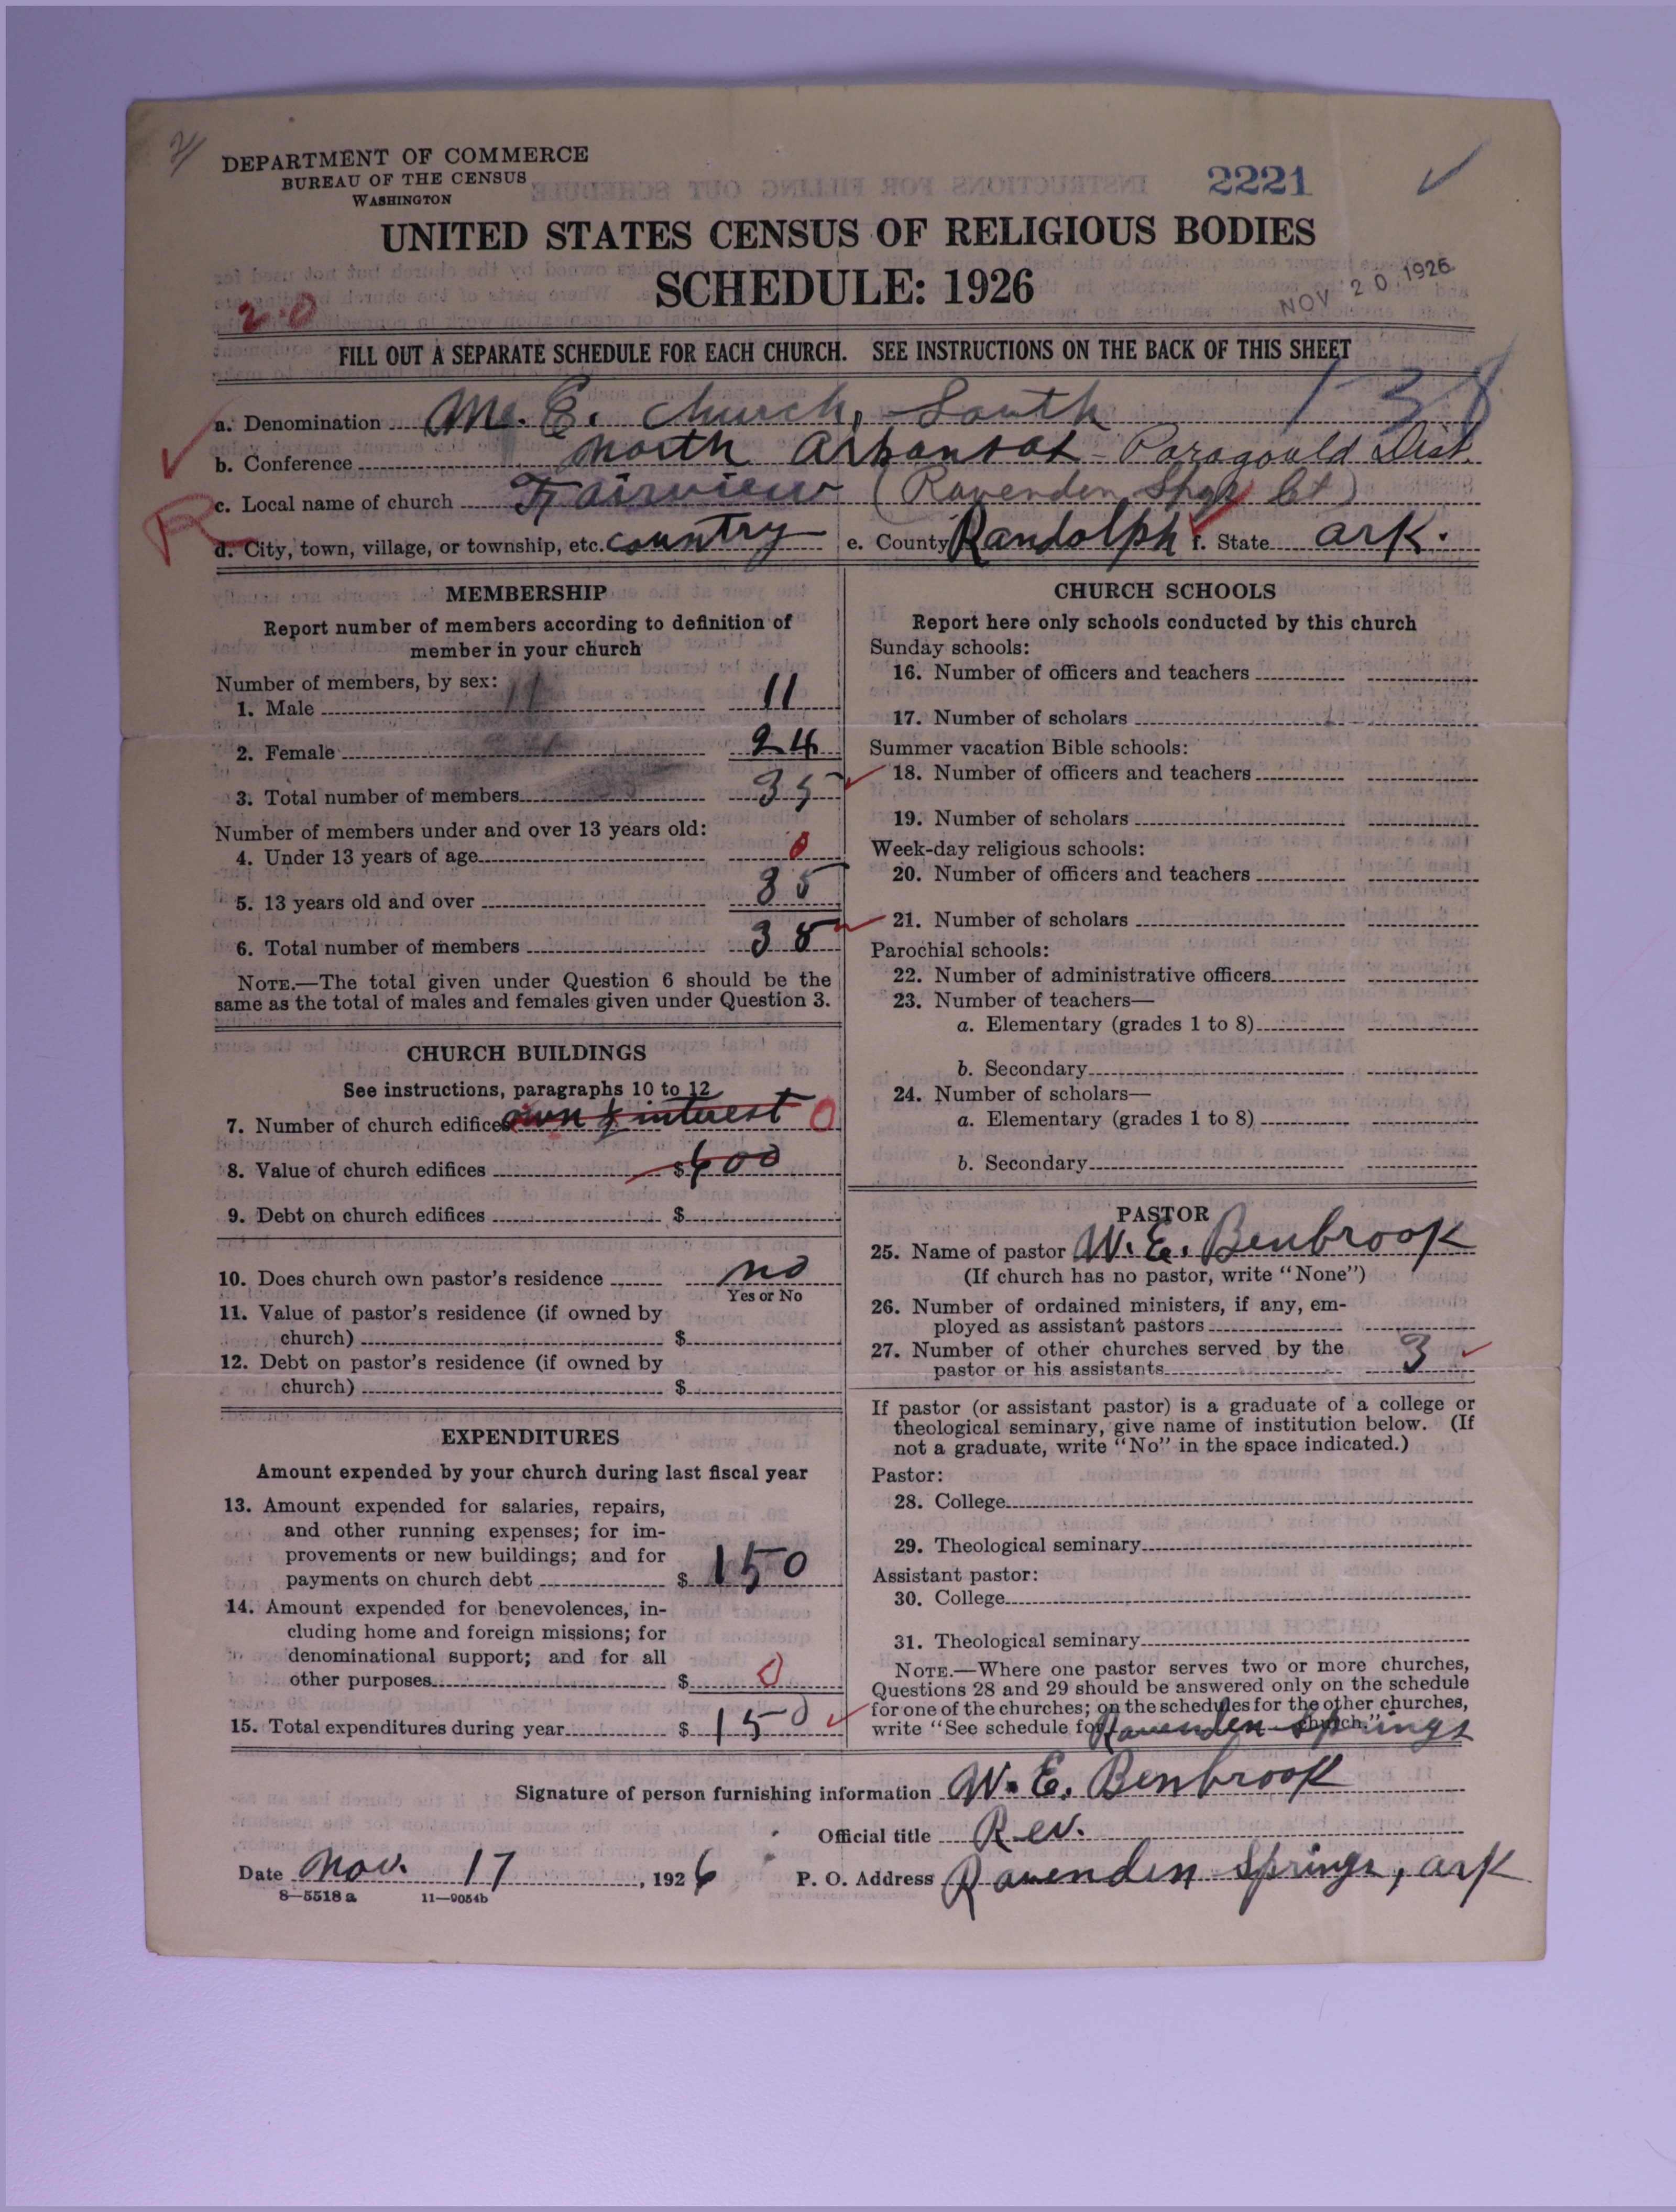 DEPARTMENT OF COMMERCE
BUREAU OF THE CENSUS
WASHINGTON
2221
UNITED STATES CENSUS OF RELIGIOUS BODIES
SCHEDULE: 1926
NOV 20 1926
2-0
FILL OUT A SEPARATE SCHEDULE FOR EACH CHURCH. SEE INSTRUCTIONS ON THE BACK OF THIS SHEET
138
a. Denomination M. E. Church, South
b. Conference North Arkansas - Paragould Dist.
c. Local name of church Fairview (Ravenden Spgs Ct)
R
d. City, town, village, or township, etc. country e. County Randolph f. State Ark.
MEMBERSHIP
Report number of members according to definition of
member in your church
Number of members, by sex:
1. Male 11
2. Female 24
3. Total number of members 35
Number of members under and over 13 years old:
4. Under 13 years of age 0
5. 13 years old and over 35
6. Total number of members 35
NOTE.—The total given under Question 6 should be the
same as the total of males and females given under Question 3.
CHURCH BUILDINGS
See instructions, paragraphs 10 to 12
7. Number of church edifices own ½ interest 0
8. Value of church edifices $600
9. Debt on church edifices $
10. Does church own pastor's residence no
Yes or No
11. Value of pastor's residence (if owned by
church) $
12. Debt on pastor's residence (if owned by
church) $
EXPENDITURES
Amount expended by your church during last fiscal year
13. Amount expended for salaries, repairs,
and other running expenses; for im-
provements or new buildings; and for
payments on church debt $ 150
14. Amount expended for benevolences, in-
cluding home and foreign missions; for
denominational support; and for all
other purposes $ 0
15. Total expenditures during year $ 150
CHURCH SCHOOLS
Report here only schools conducted by this church
Sunday schools:
16. Number of officers and teachers
17. Number of scholars
Summer vacation Bible schools:
18. Number of officers and teachers
19. Number of scholars
Week-day religious schools:
20. Number of officers and teachers
21. Number of scholars
Parochial schools:
22. Number of administrative officers
23. Number of teachers—
a. Elementary (grades 1 to 8)
b. Secondary
24. Number of scholars—
a. Elementary (grades 1 to 8)
b. Secondary
PASTOR
25. Name of pastor W. E. Benbrook
(If church has no pastor, write "None")
26. Number of ordained ministers, if any, em-
ployed as assistant pastors
27. Number of other churches served by the
pastor or his assistants 3
If pastor (or assistant pastor) is a graduate of a college or
theological seminary, give name of institution below. (If
not a graduate, write "No" in the space indicated.)
Pastor:
28. College
29. Theological seminary
Assistant pastor:
30. College
31. Theological seminary
NOTE.—Where one pastor serves two or more churches,
Questions 28 and 29 should be answered only on the schedule
for one of the churches; on the schedules for the other churches,
write "See schedule for Ravenden Springs church."
Signature of person furnishing information W. E. Benbrook
Official title Rev.
Date Nov. 17, 1926 P. O. Address Ravenden Springs, Ark
8—5518 a 11—9054b